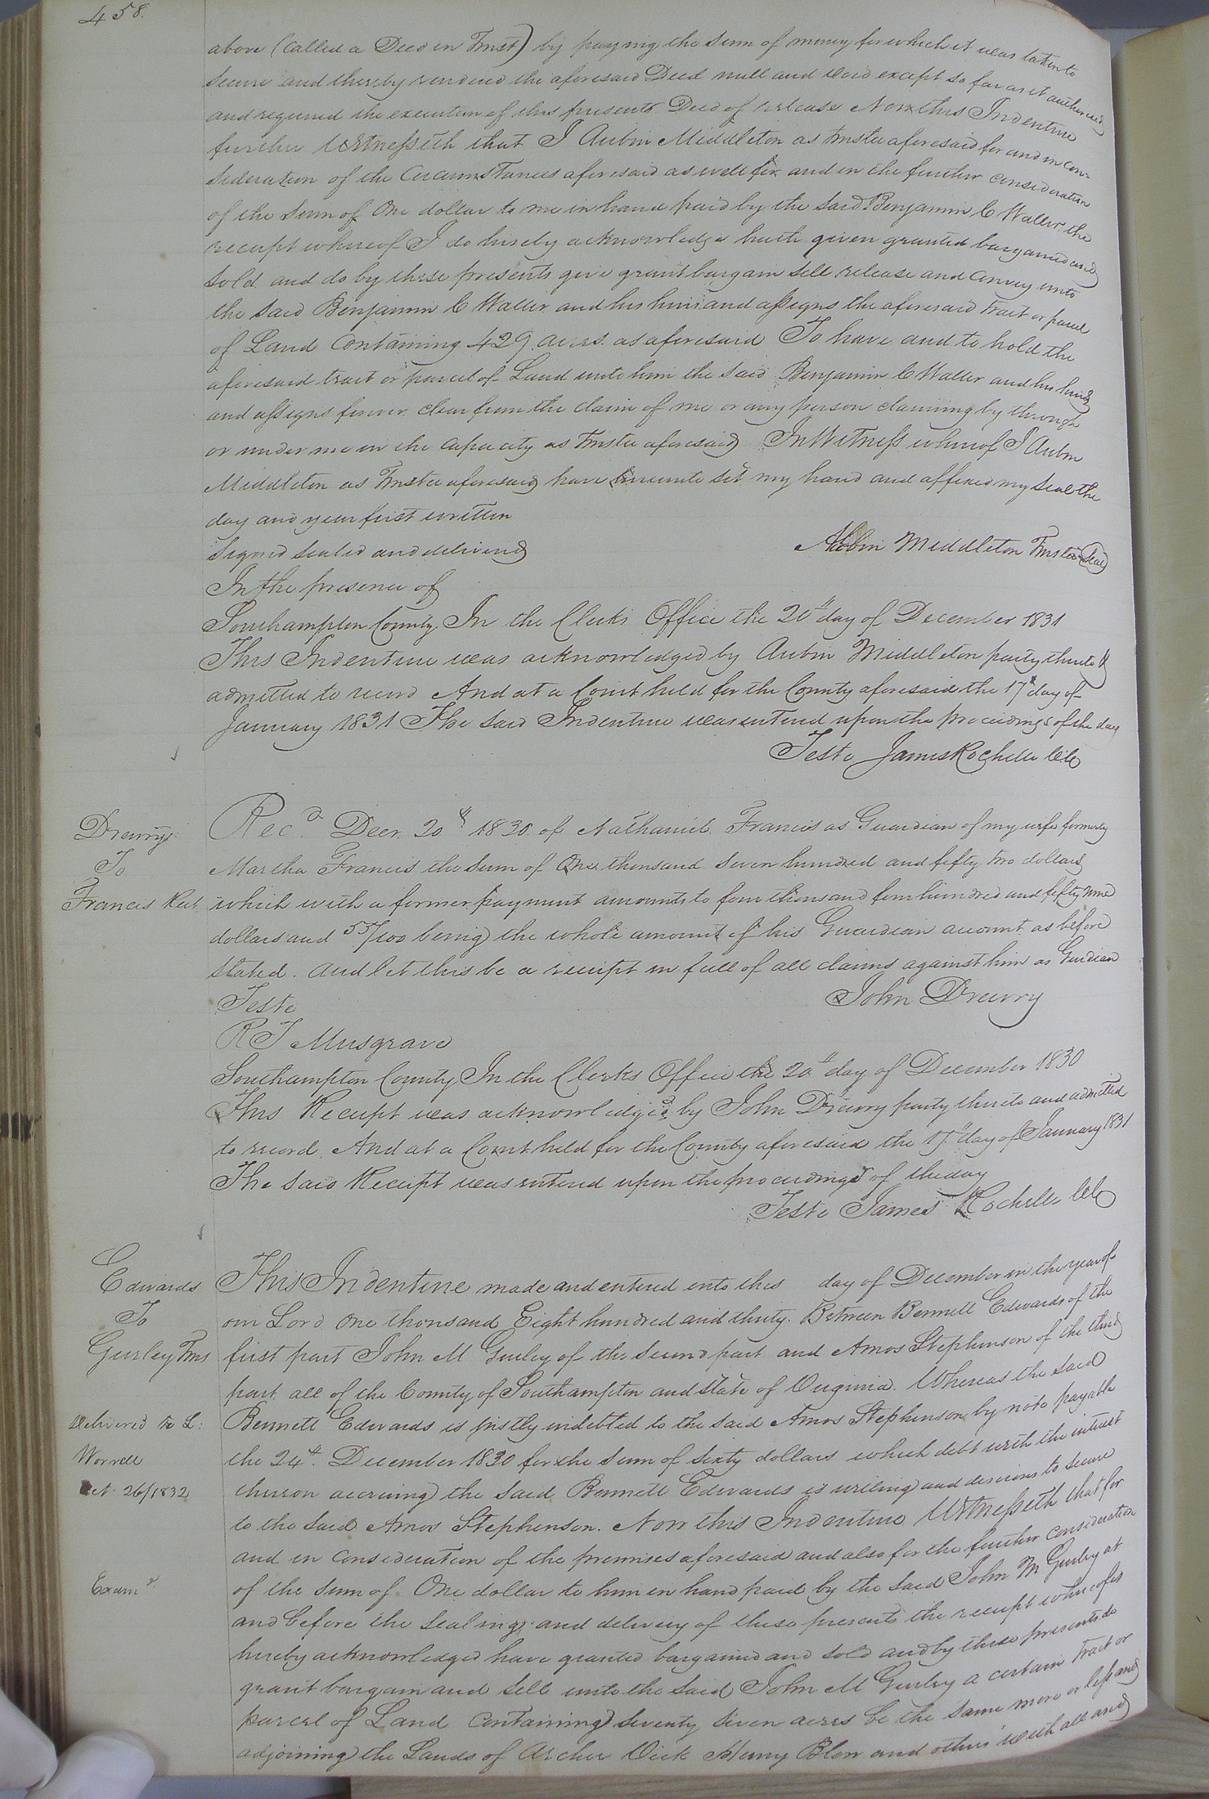 458.
above (Called a Deed in Trust) by paying the sum of money for which it was taken to
secure and thereby rendered the aforesaid Deed null and void except so far as it authorised
and required the execution of this presents Deed of release Now this Indenture
further Witnesseth that I Aubin Middleton as trustee aforesaid for and in con
sideration of the Circumstances aforesaid as well for and in the further consideration
of the sum of One dollar to me in hand paid by the said Benjamin C Waller the
receipt whereof I do hereby acknowledge hath given granted bargained and
sold and do by these presents give grant bargain sell release and convey unto
the said Benjamin C Waller and his heirs and assigns the aforesaid tract or parcel
of Land Containing 429 acres as aforesaid To have and to hold the
aforesaid tract or parcel of Land unto him the said Benjamin C Waller and his heirs
and assigns forever clear from the claim of me or any person claiming by through
or under me in the capacity as trustee aforesaid In Witness whereof I Aubin
Middleton as Trustee aforesaid have hereunto set my hand and affixed my seal the
day and year first written
Signed sealed and delivered
Aubin Middleton Trustee Seal
In the presence of
Southampton County In the Clerks Office the 20th day of December 1831
This Indenture was acknowledged by Aubin Middleton party thereto &
admitted to record And at a Court held for the County aforesaid the 17th day of
January 1831 The said Indenture was entered upon the proceedings of the day
Teste James Rochelle Clk
Drewry
To
Francis Rect
Recd. Decr. 20th 1830 of Nathaniel Francis as Guardian of my wife formerly
Martha Francis the sum of One thousand seven hundred and fifty two dollars
which with a former payment amounts to four thousand four hundred and fifty nine
dollars and 55/100 being the whole amount of his Guardian account as before
stated. And let this be a receipt in full of all claims against him as Guardian
Teste
John Drewry
R T Musgrave
Southampton County In the Clerks Office the 20th day of December 1830
This Receipt was acknowledged by John Drewry party thereto and admitted
to record. And at a Court held for the County aforesaid the 17th day of January 1831
The said Receipt was entered upon the proceedings of the day
Teste James Rochelle Clk
Edwards
To
Gurley Trus
Delivered to L:
Worrell
Oct. 26/1832
Examd
This Indenture made and entered into this day of December in the year of
our Lord One thousand Eight hundred and thirty. Between Bennett Edwards of the
first part John M Gurley of the second part and Amos Stephenson of the third
part all of the County of Southampton and State of Virginia. Whereas the said
Bennett Edwards is justly indebted to the said Amos Stephenson by note payable
the 24th December 1830 for the sum of sixty dollars which debt with the interest
thereon accruing the said Bennett Edwards is willing and desirous to secure
to the said Amos Stephenson. Now this Indenture Witnesseth that for
and in consideration of the premises aforesaid and also for the further consideration
of the sum of One dollar to him in hand paid by the said John M Gurley at
and before the sealing and delivery of these presents the receipt whereof is
hereby acknowledged have granted bargained and sold and by these presents do
grant bargain and sell unto the said John M Gurley a certain tract or
parcel of Land Containing seventy seven acres be the same more or less and
adjoining the Lands of Archer Vick Henry Blow and others with all and